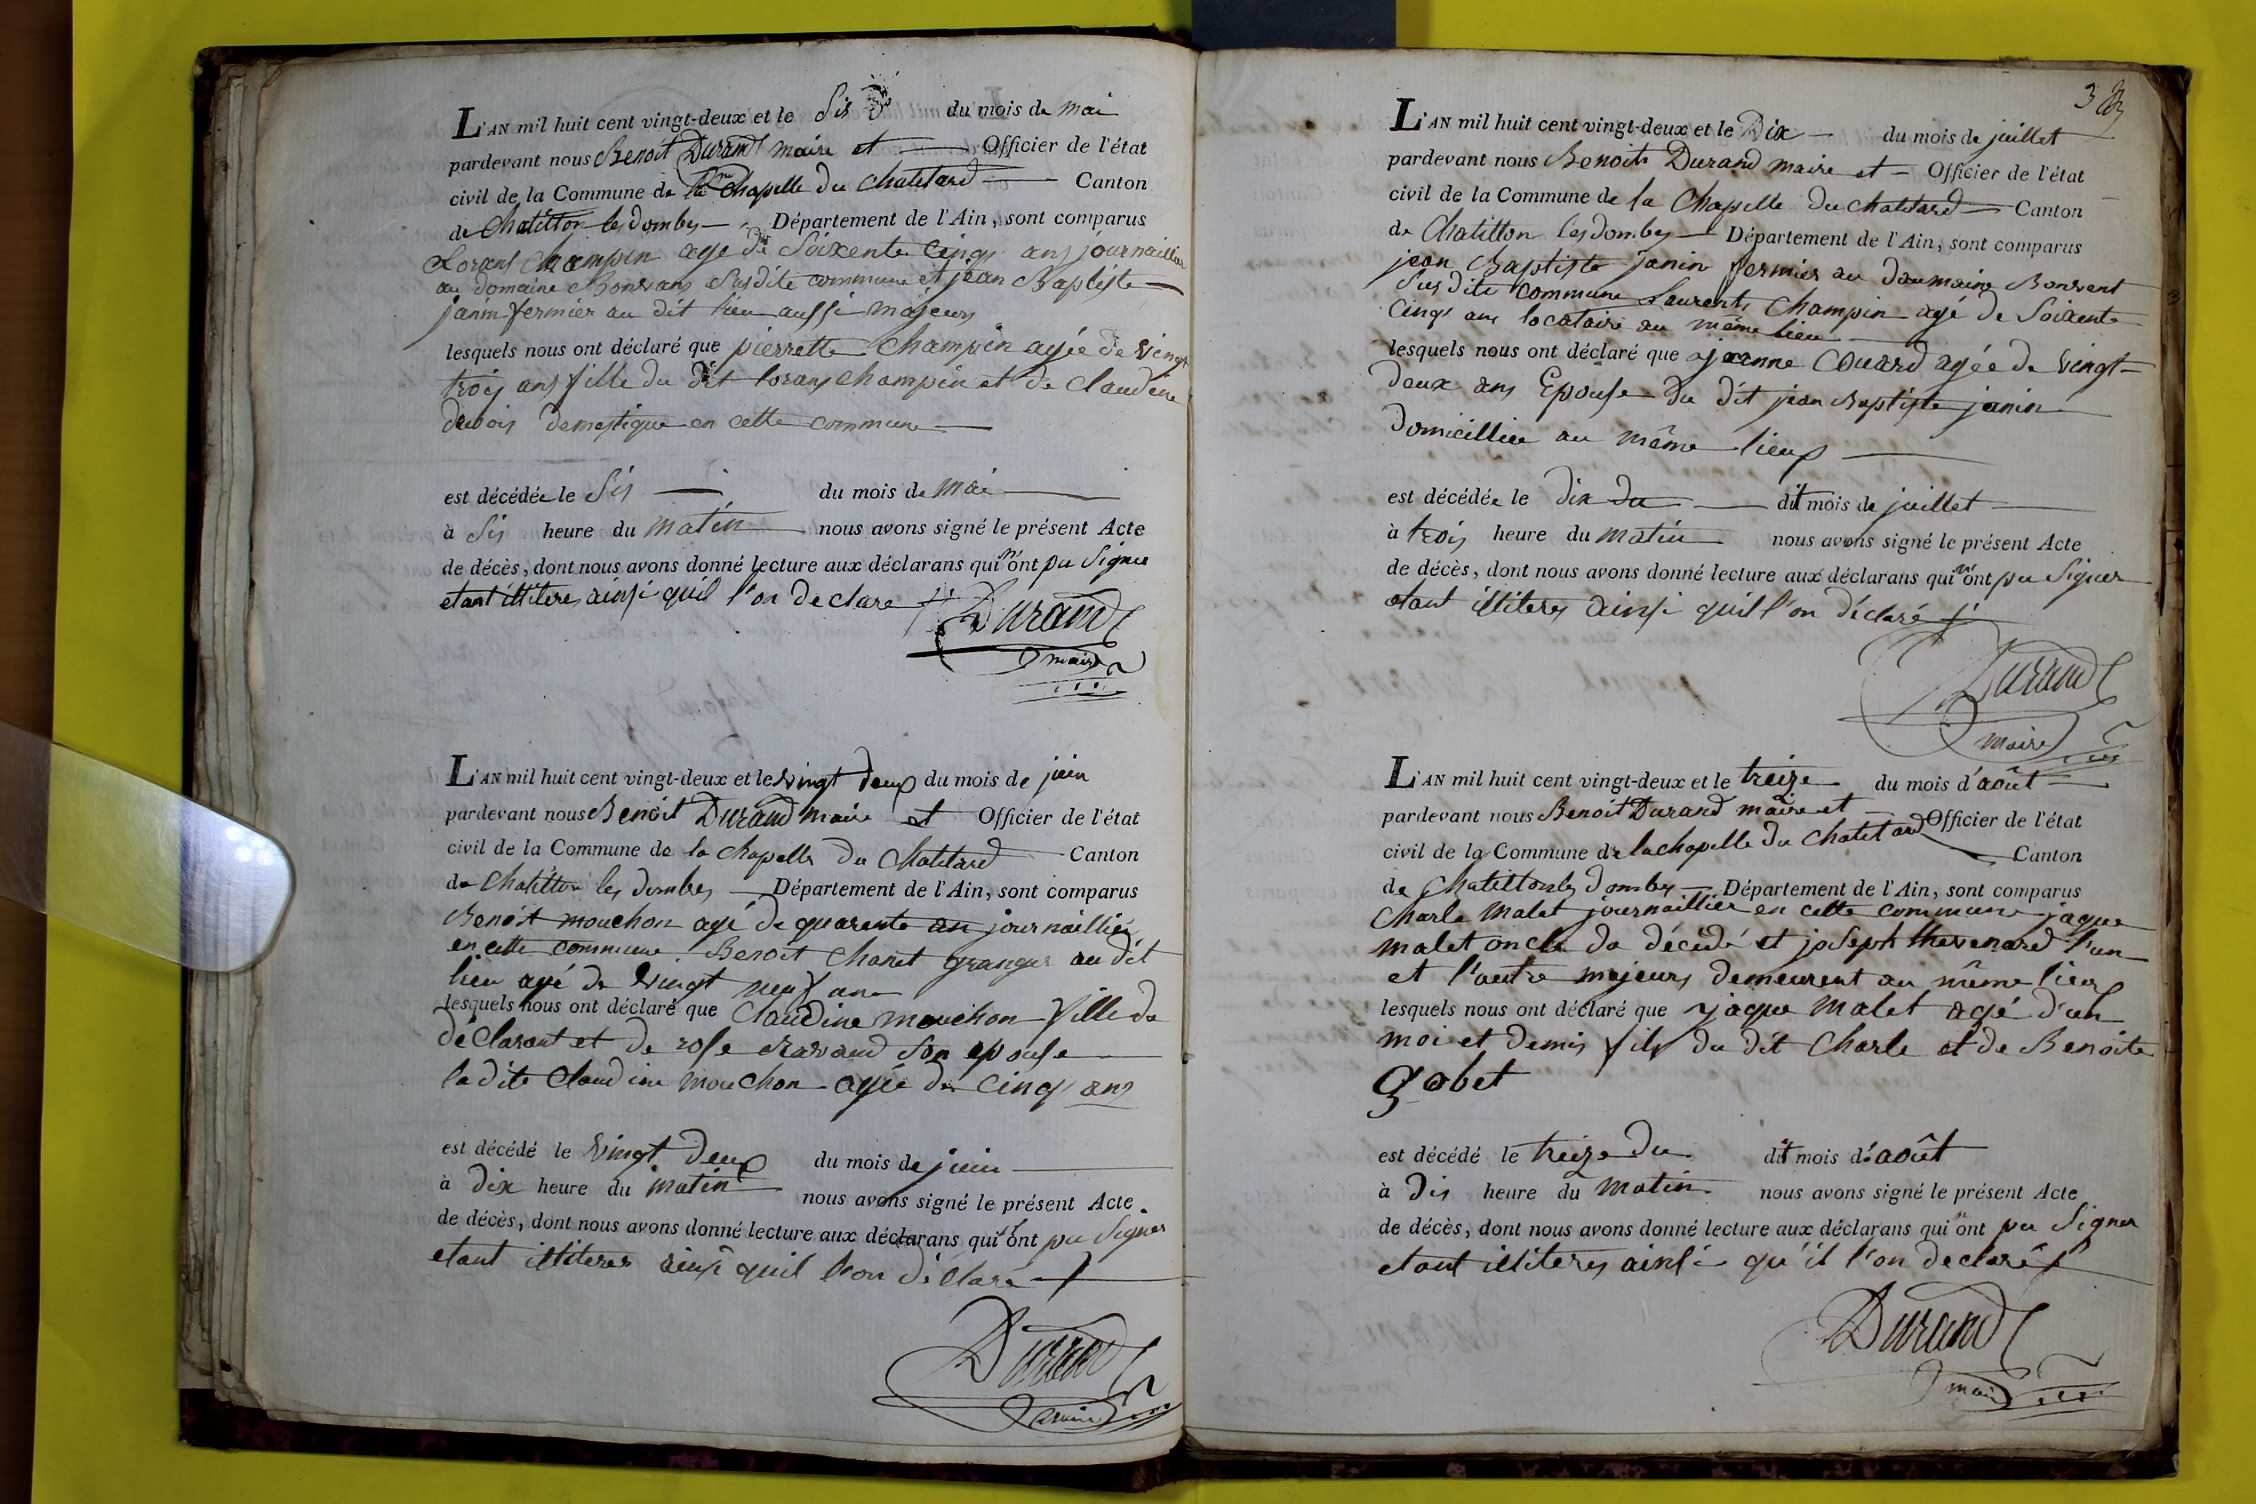 L'AN mil huit cent vingt-deux et le Sis du mois de mai
pardevant nous Benoit Durand maire et Officier de l'état
civil de la Commune de la Chapelle du Chatelard Canton
de Chatillon les dombes Département de l'Ain, sont comparus
Lorans Champin age de Soixente cinq ans journaillier
au domaine Bonvans Susdite commune et jean Baptiste
janin fermier au dit lieu aussi majeurs
lesquels nous ont déclaré que pierrette Champin agée de vingt
trois ans fille du dit lorans champin et de Claudine
dubois domestique en cette commune
est décédée le Sis du mois de mai
à Sis heure du matin nous avons signé le présent Acte
de décès, dont nous avons donné lecture aux déclarans qui n'ont pu Signer
etant illiteres ainsi quil l'on declare
Durand
maire
L'AN mil huit cent vingt-deux et le vingt deux du mois de juin
pardevant nous Benoit Durand maire et Officier de l'état
civil de la Commune de la Chapelle du Chatelard Canton
de Chatillon les dombes Département de l'Ain, sont comparus
Benoit mouchon agé de quarente an journaillier
en cette commune. Benoit Chanet granger au dit
lieu agé de vingt neuf ans
lesquels nous ont déclaré que Claudine mouchon fille de
déclarant et de rose son epouse
la dite Claudine mouchon agée de Cinq ans
est décédé le vingt deux du mois de juin
à dix heure du matin nous avons signé le présent Acte
de décès, dont nous avons donné lecture aux déclarans qui n'ont pu Signer
etant illiteres ainsi quil l'on déclaré
Durand
maire
3
L'AN mil huit cent vingt-deux et le Dix du mois de juillet
pardevant nous Benoit Durand maire et Officier de l'état
civil de la Commune de la Chapelle du Chatelard Canton
de Chatillon les dombes Département de l'Ain, sont comparus
jean Baptiste janin fermier au doumaine Bonvent
Susdite commune Laurents Champin agé de Soixente
Cinq ans locataire au même lieu
lesquels nous ont déclaré que jeanne Couard agée de vingt
deux ans Epouse du dit jean Baptiste janin
domicilliée au même lieux
est décédée le dix du dit mois de juillet
à trois heure du matin nous avons signé le présent Acte
de décès, dont nous avons donné lecture aux déclarans qui n'ont pu Signer
etant illiteres ainsi quil l'on déclaré
Durand
maire
L'AN mil huit cent vingt-deux et le treize du mois d'août
pardevant nous Benoit Durand maire et Officier de l'état
civil de la Commune de la chapelle du Chatelard Canton
de Chatillon les dombes Département de l'Ain, sont comparus
Charle Malet journaillier en cette commune jaque
malet oncle do décédé et joseph thevenard l'un
et l'autre majeurs demeurent au même lieu
lesquels nous ont déclaré que jaque malet agé d'un
moi et demis fils du dit Charle et de Benoite
gobet
est décédé le treize du dit mois d'août
à Dis heure du matin nous avons signé le présent Acte
de décès, dont nous avons donné lecture aux déclarans qui n'ont pu Signer
etant illiteres ainsi qu'il l'on declaré
Durand
maire